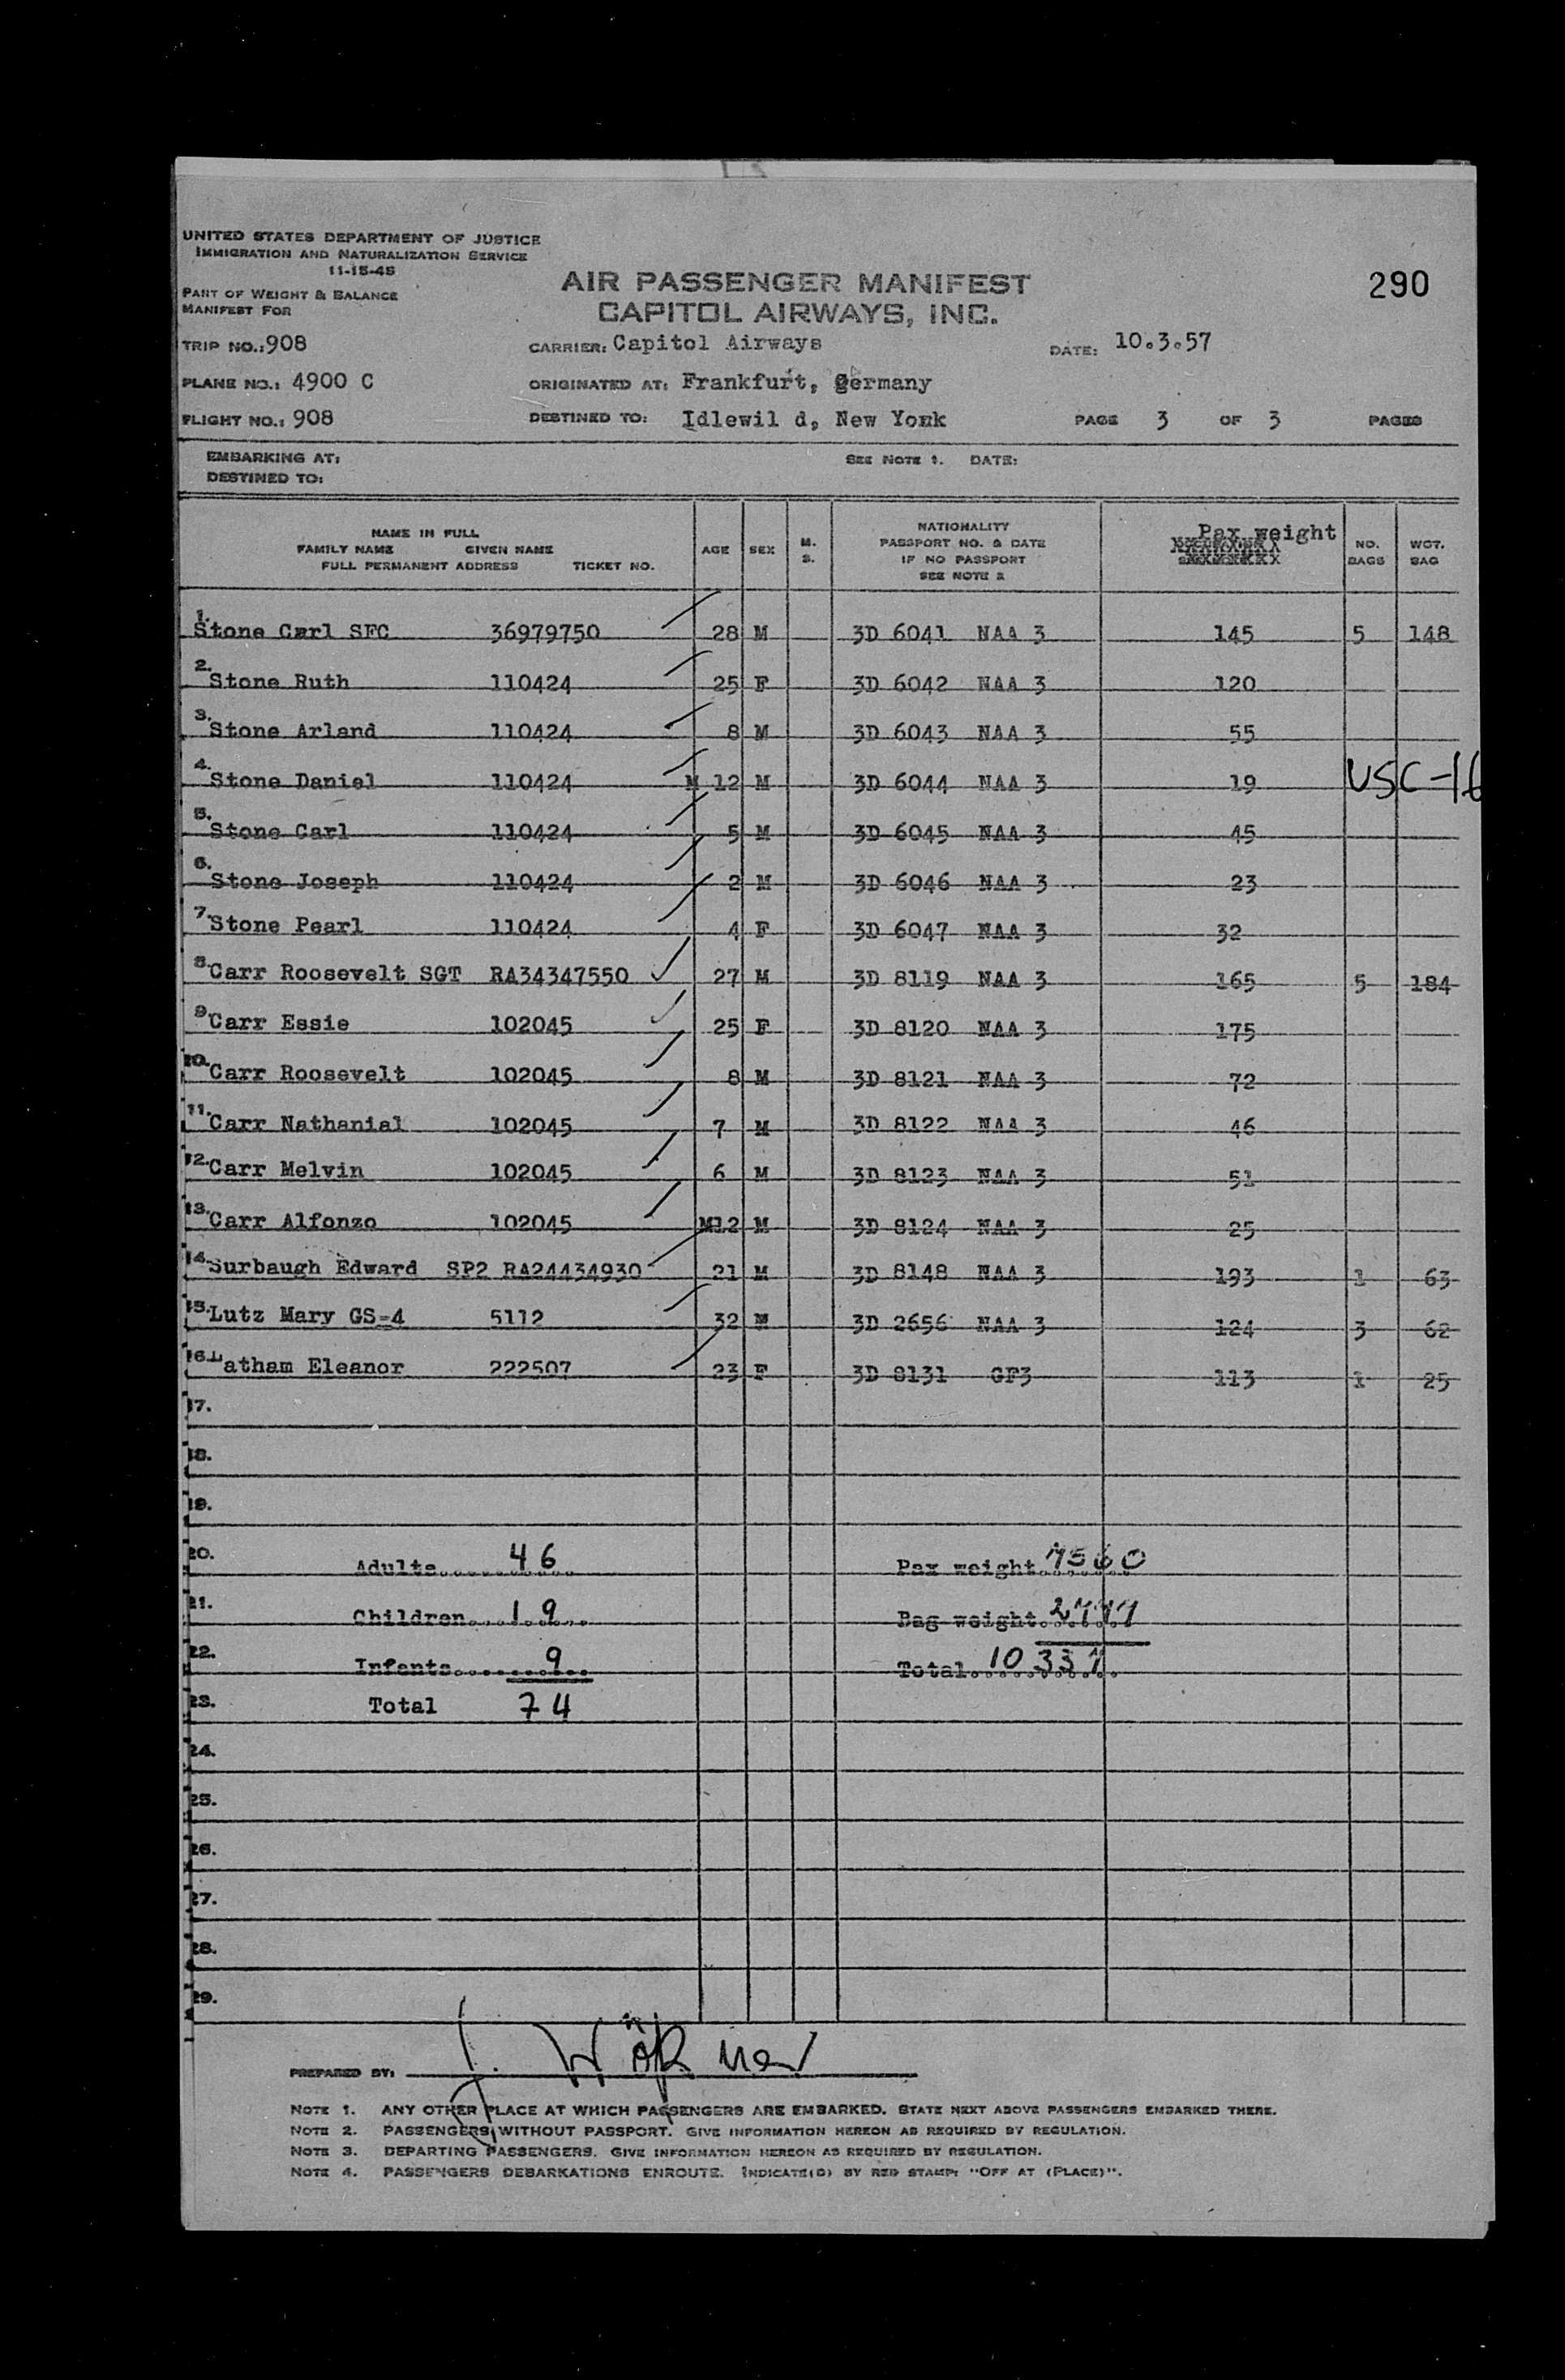 UNITED STATES DEPARTMENT OF JUSTICE
IMMIGRATION AND NATURALIZATION SERVICE
11-15-45
PART OF WEIGHT & BALANCE
MANIFEST FOR
AIR PASSENGER MANIFEST
CAPITOL AIRWAYS, INC.
290
TRIP NO.: 908 CARRIER: Capitol Airways DATE: 10.3.57
PLANE NO.: 4900 C ORIGINATED AT: Frankfurt, Germany
FLIGHT NO.: 908 DESTINED TO: Idlewil d, New York PAGE 3 OF 3 PAGES
EMBARKING AT: SEE NOTE 1. DATE:
DESTINED TO:
NAME IN FULL
FAMILY NAME GIVEN NAME
FULL PERMANENT ADDRESS TICKET NO.
AGE SEX M. S.
NATIONALITY
PASSPORT NO. & DATE
IF NO PASSPORT
SEE NOTE 2
Pax weight
NO. BAGS
WGT. BAG
1. Stone Carl SFC 36979750 28 M 3D 6041 NAA 3 145 5 148
2. Stone Ruth 110424 25 F 3D 6042 NAA 3 120
3. Stone Arland 110424 8 M 3D 6043 NAA 3 55
4. Stone Daniel 110424 M 12 M 3D 6044 NAA 3 19 USC-16
5. Stone Carl 110424 5 M 3D 6045 NAA 3 45
6. Stone Joseph 110424 2 M 3D 6046 NAA 3 23
7. Stone Pearl 110424 4 F 3D 6047 NAA 3 32
8. Carr Roosevelt SGT RA34347550 27 M 3D 8119 NAA 3 165 5 184
9. Carr Essie 102045 25 F 3D 8120 NAA 3 175
10. Carr Roosevelt 102045 8 M 3D 8121 NAA 3 72
11. Carr Nathanial 102045 7 M 3D 8122 NAA 3 46
12. Carr Melvin 102045 6 M 3D 8123 NAA 3 51
13. Carr Alfonzo 102045 M12 M 3D 8124 NAA 3 25
14. Surbaugh Edward SP2 RA24434930 21 M 3D 8148 NAA 3 193 1 63
15. Lutz Mary GS-4 5112 32 M 3D 2656 NAA 3 124 3 62
16. Latham Eleanor 222507 23 F 3D 8131 GF3 113 1 25
17.
18.
19.
20. Adults.......... 46 Pax weight....... 7560
21. Children........ 19 Bag weight....... 2777
22. Infants.......... 9 Total.......... 10 337
23. Total 74
24.
25.
26.
27.
28.
29.
PREPARED BY:
NOTE 1. ANY OTHER PLACE AT WHICH PASSENGERS ARE EMBARKED. STATE NEXT ABOVE PASSENGERS EMBARKED THERE.
NOTE 2. PASSENGERS WITHOUT PASSPORT. GIVE INFORMATION HEREON AS REQUIRED BY REGULATION.
NOTE 3. DEPARTING PASSENGERS. GIVE INFORMATION HEREON AS REQUIRED BY REGULATION.
NOTE 4. PASSENGERS DEBARKATIONS ENROUTE. INDICATE(D) BY RED STAMP: "OFF AT (PLACE)".